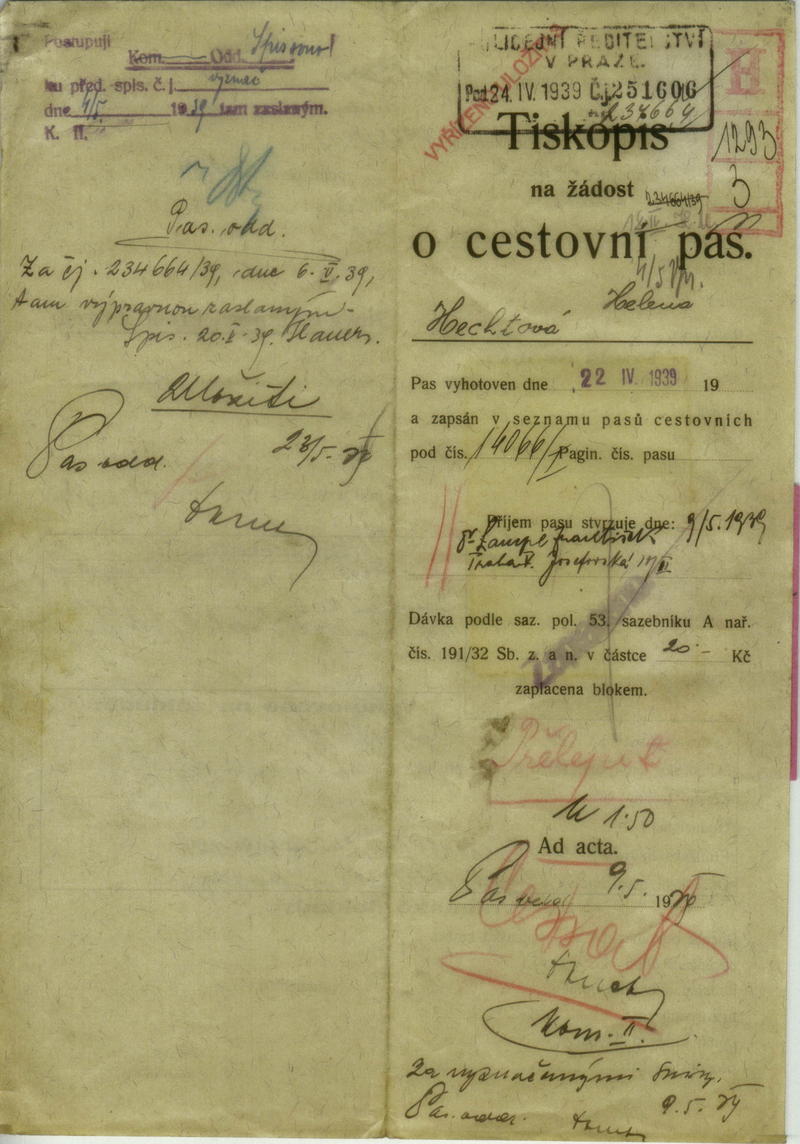 Postupuji
Kom. Odd. Spisovna
ku před. spis. č. j.
dne 4/5. 1939 tam zaslaným.
K. II.
Pas. odd.
Za čj. 234664/39, dne 6. V. 39,
tam výpravnou zaslaným.
Spis. 20.V.39.
Uložiti
Pas. odd. 23/5. 39
POLICEJNÍ ŘEDITELSTVÍ
V PRAZE.
Pod 24. IV. 1939 Čj. 251606
234664
VYŘÍZENO ULOŽ
H
1293
3
Tiskopis
na žádost
234664/39
o cestovní pas.
4/5
Hechtová Helena
Pas vyhotoven dne 22 IV. 1939 19
a zapsán v seznamu pasů cestovních
pod čís. 14066/I Pagin. čís. pasu
Příjem pasu stvrzuje dne: 9/5. 1939
Dr. František
Praha V. Josefovská
Dávka podle saz. pol. 53. sazebníku A nař.
čís. 191/32 Sb. z. a n. v částce 20.- Kč
zaplacena blokem.
1·50
Ad acta.
9.5. 1939
Kom. II.
Za vyznačenými
Pas. odd. 9. 5. 39